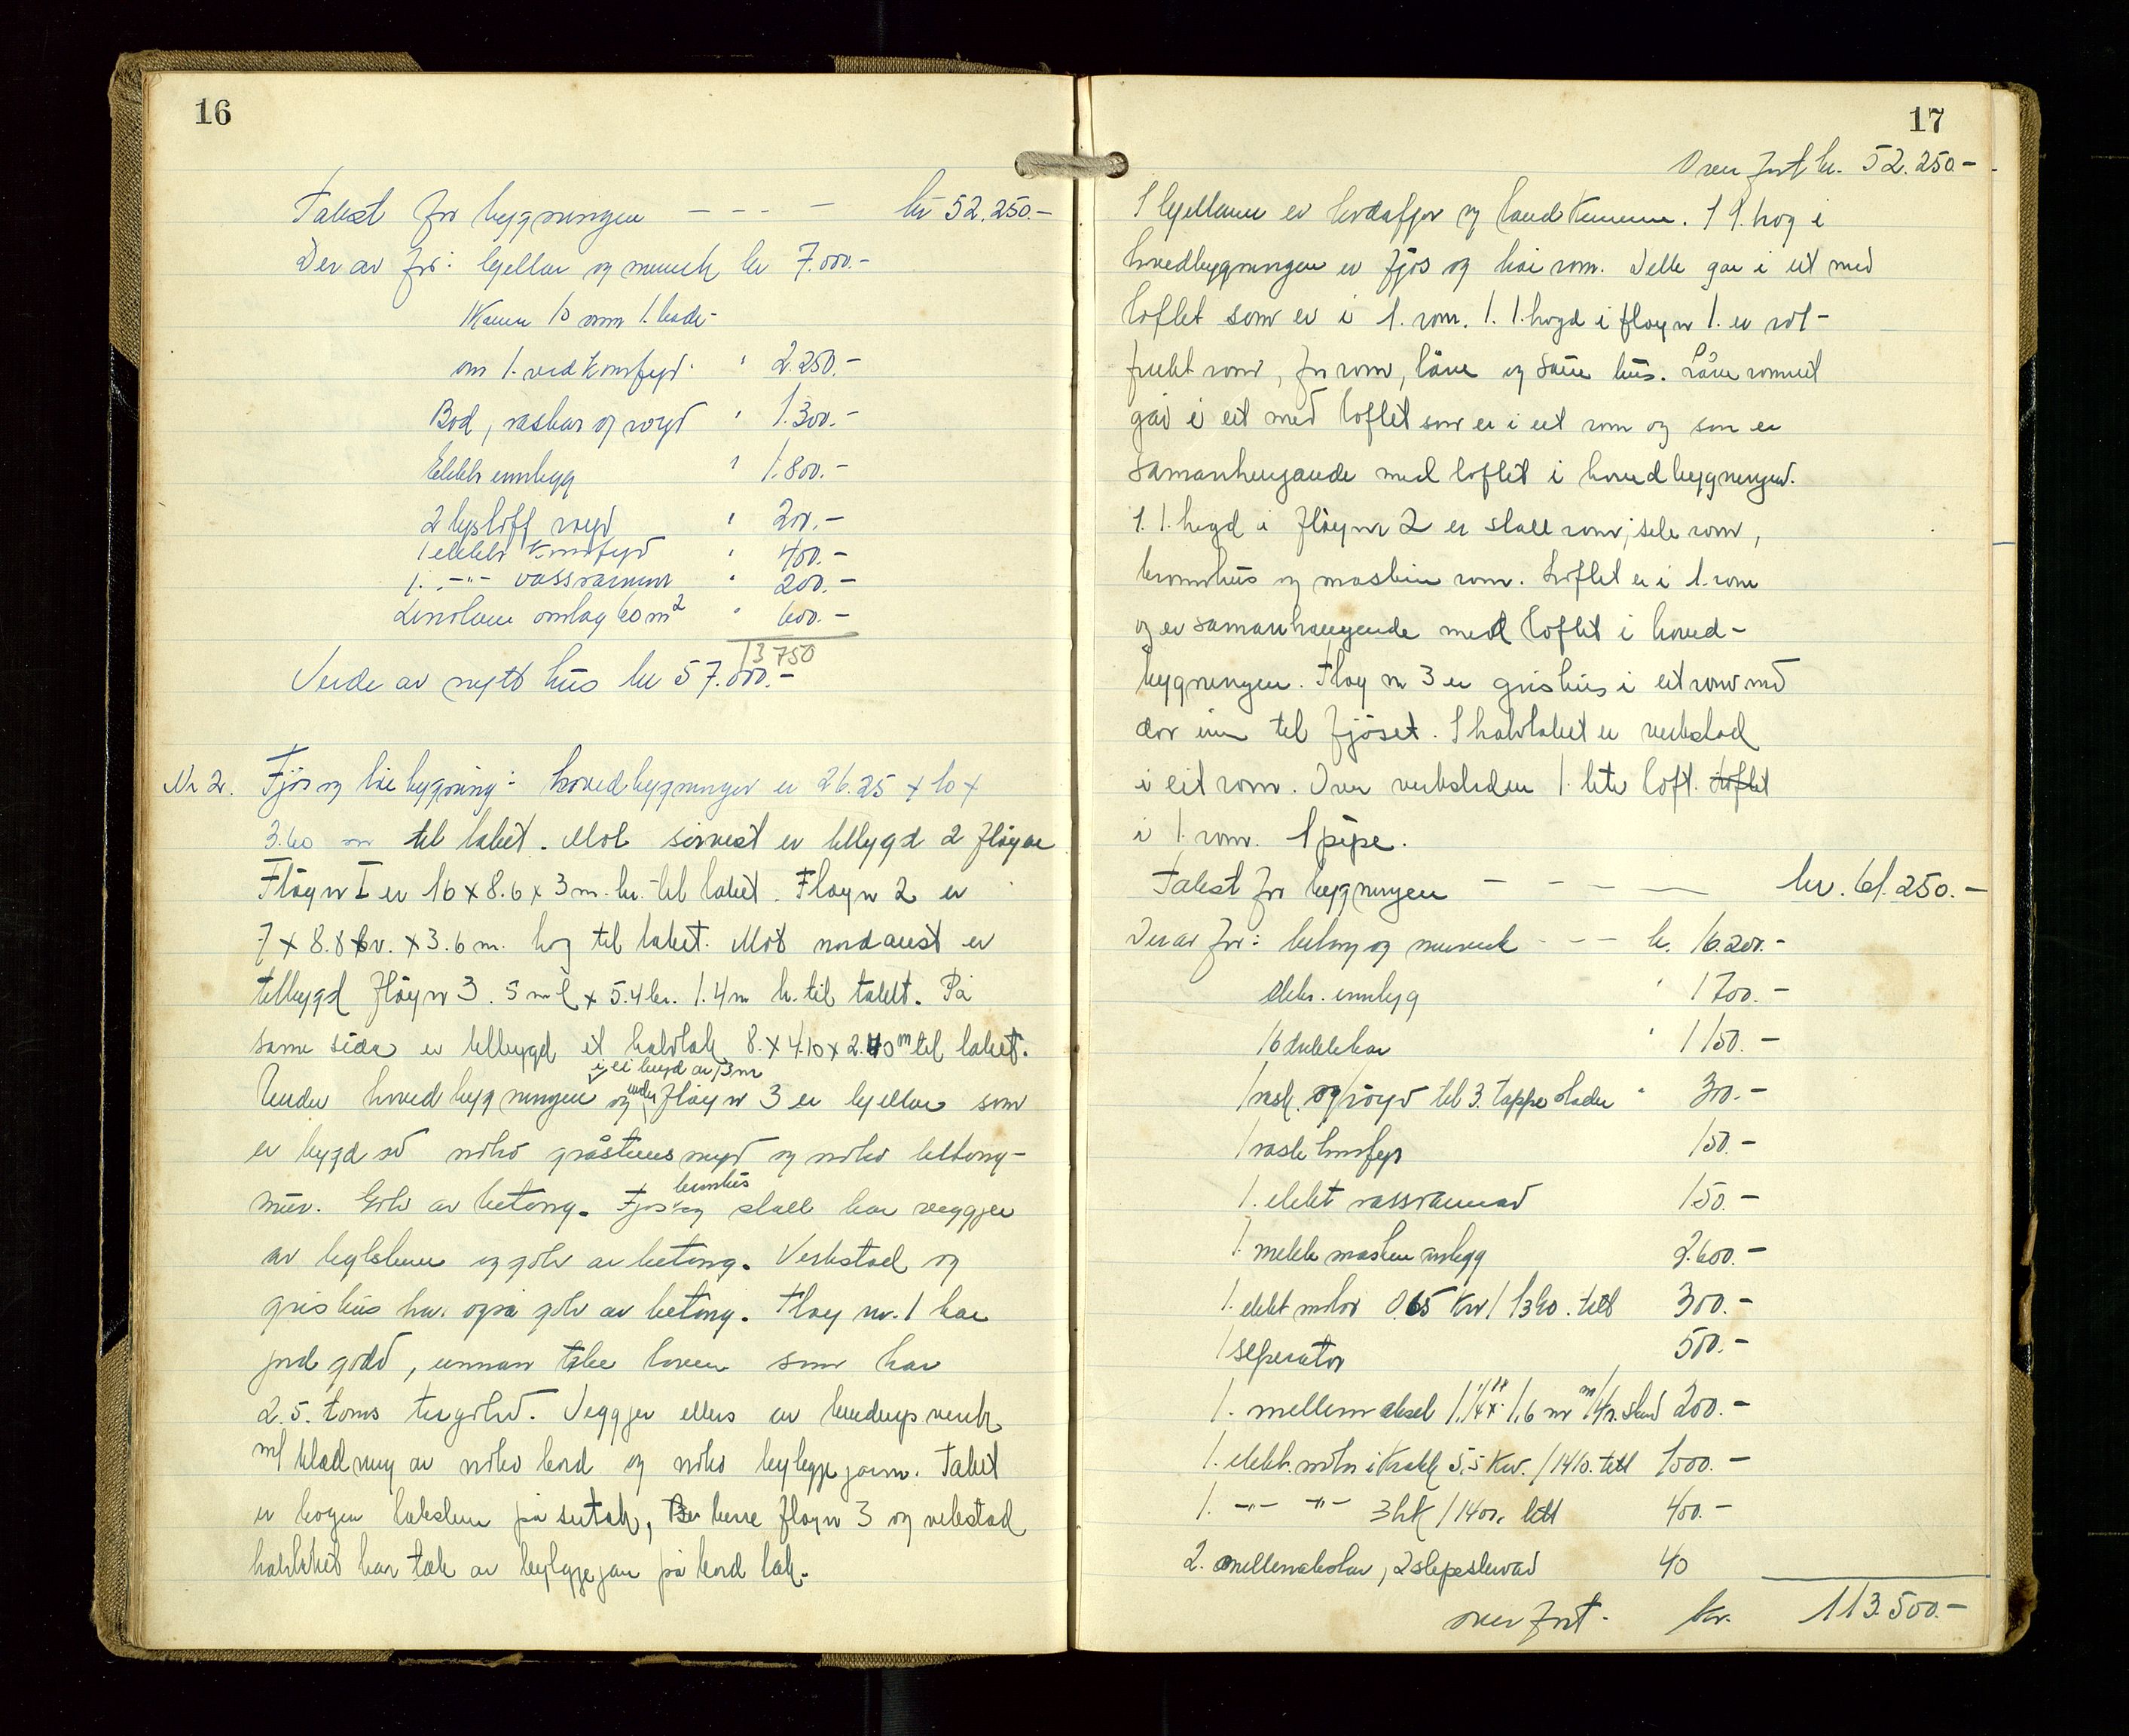 16
Takst for bygningen - - - - kr 52.250.-
Der av for: kjellar og murverk kr 7.000.-
1 vedkomfyr " 2.250.-
Bod, vaskar og røyr " 1.300.-
Elektr innlegg " 1.800.-
2 røyr " 200.-
1 elektr komfyr " 400.-
1. -"- vassvarmar " 200.-
Linoleum omlag 60 m2 " 600.-
13750
Verde av nytt hus kr 57.000.-
Nr 2. Fjøs og løe bygning: hovedbygningen er 26.25 x 10 x
3.60 m til taket. Mot sørvest er tilbygd 2 fløyar
Fløy nr I er 16 x 8.6 x 3 m. h. til taket. Fløy nr 2 er
7 x 8.8 br. x 3.6 m. høg til taket. Mot nordaust er
tilbygd fløy nr 3. 5 m l x 5.4 br. 1.4 m h. til taket. På
same sida er tilbygd eit halvtak 8. x 4.10 x 2.40 m til taket.
i ei lengd av 13 m
Under hovedbygningen og under fløy nr 3 er kjellar som
er bygd av noko gråsteinsmur og noko betong-
mur. Golv av betong. Fjøs og stall har veggjer
av teglstein og golv av betong. Verkstad og
grishus har også golv av betong. Fløy nr. 1 har
jord golv, unnan låven som har
2.5. toms tregolv. Veggjer elles av bindingsverk
m/ kledning av noko bord og noko bylgjejarn. Taket
er haugen takstein på sutak, berre fløy nr 3 og verkstad
halvtaket har tak av bylgjejarn på bord tak.
17
Over ført kr. 52.250.-
I kjellaren er og landkummar. I 1. høg i
hovedbygningen er fjøs og høi rom. Dette går i eit med
loftet som er i 1. rom. I 1. høgd i fløy nr 1. er rot-
frukt rom, for rom, låve og saue hus. Låve rommet
går i eit med loftet som er i eit rom og som er
samanhengande med loftet i hovedbygningen.
I 1. høgd i fløy nr 2 er stall rom, sele rom,
brunnhus og maskin rom. Loftet er i 1. rom
og er samanhengende med loftet i hoved-
bygningen. Fløy nr 3 er grishus i eit rom med
dør inn til fjøset. I halvtaket er verkstad
i eit rom. Over verkstaden 1. lite loft. Loftet
i 1. rom. 1 pipe.
Takst for bygningen - - - - kr. 61.250.-
Derav for: betong og murverk - - - kr. 16.200.-
elektr. innlegg " 1700.-
16 drikkekar " 1150.-
1 vask. og røyr til 3. tappe stader " 300.-
1 vaske komfyr 150.-
1. elekt vassvarmar 150.-
1. melke maskin anlegg 2.600.-
1. elekt motor 0.65 Kw / 1390. tell 300.-
1 seperator 500.-
1. mellem aksel 1.1/4" x 1.6 m 200.-
1. elektr. motor i krakk 5.5 Kw. / 1410. tell 1000.-
1. -"- -"- 3 hk / 1400. tell 400.-
2. mellemakslar, 40
over ført. kr. 113.500.-